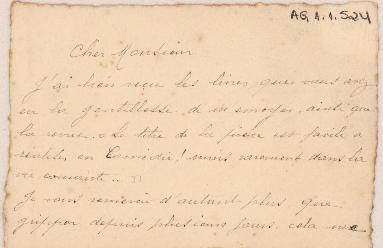 AG 1.1.524
Cher Monsieur
J'ai bien reçu les livres que vous avez
eu la gentillesse de m'envoyer, ainsi que
la revue. Le titre de la pièce est facile à
réaliser en Comédie! mais rarement dans la
vie courante...
Je vous remercie d'autant plus, que
grippée depuis plusieurs jours, cela me